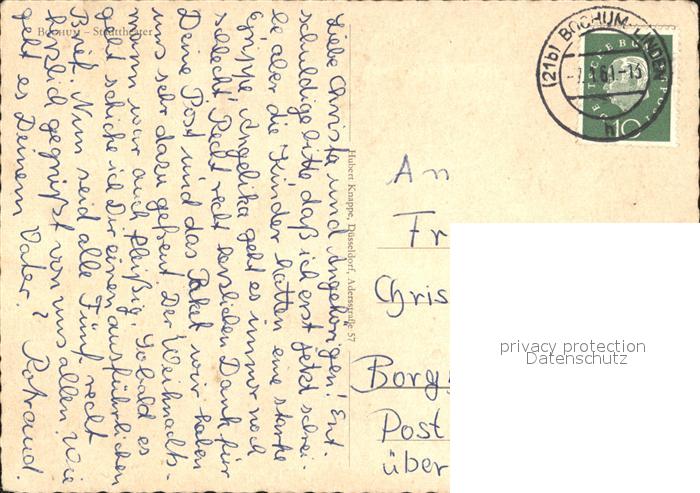 Bochum – Stadttheater
Liebe Christa und Angehörigen! Ent-
schuldige bitte daß ich erst jetzt schrei-
be aber die Kinder hatten eine starke
Grippe Angelika geht es immer noch
schlecht Recht recht herzlichen Dank für
Deine Post und das Paket wir haben
uns sehr dazu gefreut. Der Weihnachts-
mann war auch fleißig. Sobald es
geht schicke ich Dir einen ausführlichen
Brief. Nun seid alle Fünf recht
herzlich gegrüßt von uns allen. Wie
geht es Deinem Vater? Rotraud.
Hubert Knappe, Düsseldorf, Adersstraße 57
(21b) BOCHUM-LINDEN
DEUTSCHE BUNDESPOST
10
An
Fr
Chris
Borg
Post
über
privacy protection
Datenschutz